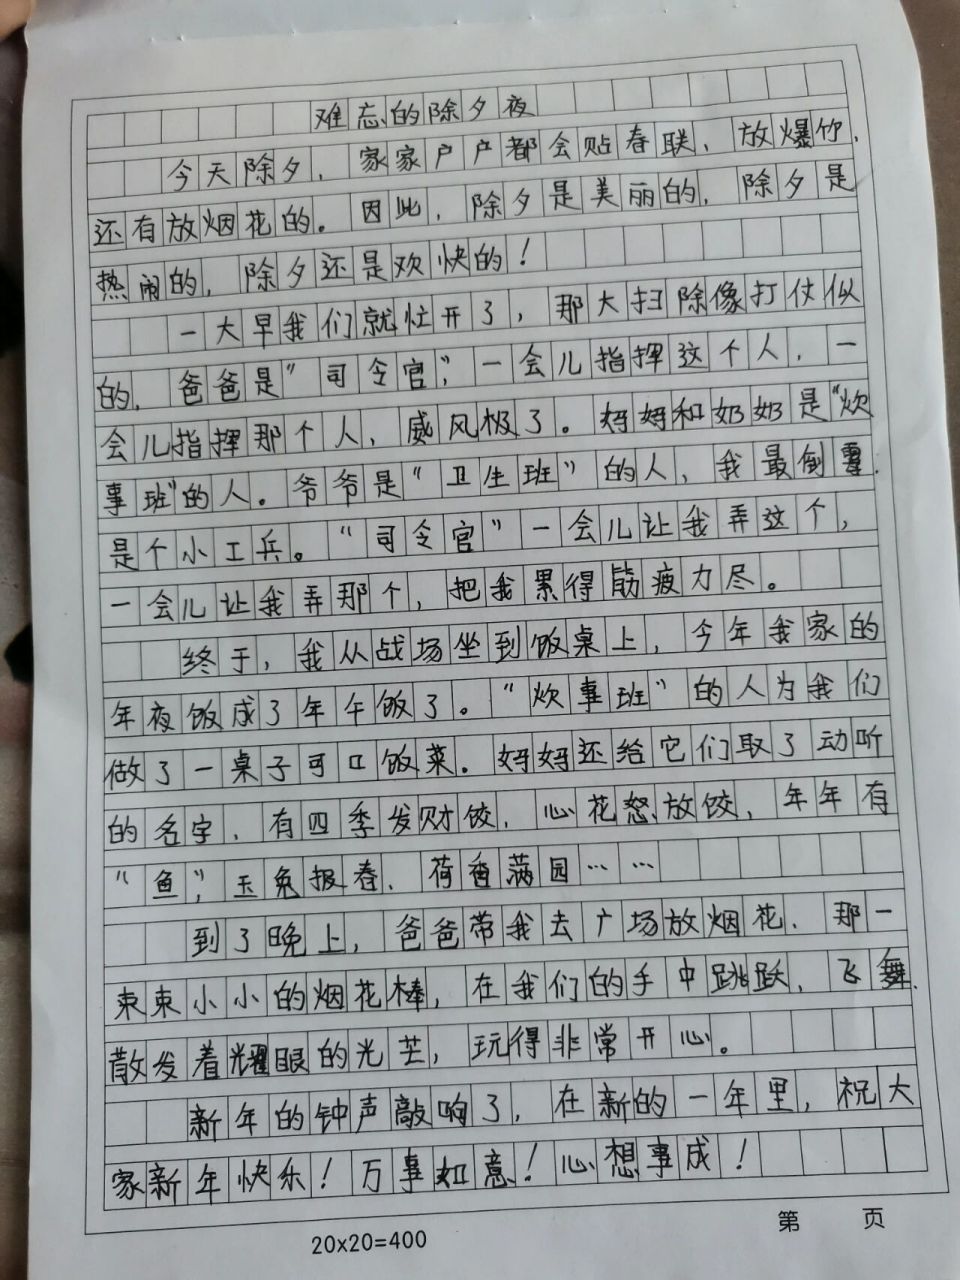 难忘的除夕夜
今天除夕，家家户户都会贴春联、放爆竹，
还有放烟花的。因此，除夕是美丽的，除夕是
热闹的，除夕还是欢快的！
一大早我们就忙开了，那大扫除像打仗似
的，爸爸是“司令官”，一会儿指挥这个人，一
会儿指挥那个人，威风极了。妈妈和奶奶是“炊
事班”的人。爷爷是“卫生班”的人，我最倒霉，
是个小工兵。“司令官”一会儿让我弄这个，
一会儿让我弄那个，把我累得筋疲力尽。
终于，我从战场坐到饭桌上，今年我家的
年夜饭成了年午饭了。“炊事班”的人为我们
做了一桌子可口饭菜。妈妈还给它们取了动听
的名字，有四季发财饺，心花怒放饺，年年有
“鱼”，玉兔报春、荷香满园……
到了晚上，爸爸带我去广场放烟花，那一
束束小小的烟花棒，在我们的手中跳跃，飞舞，
散发着耀眼的光芒，玩得非常开心。
新年的钟声敲响了，在新的一年里，祝大
家新年快乐！万事如意！心想事成！
第 页
20×20=400